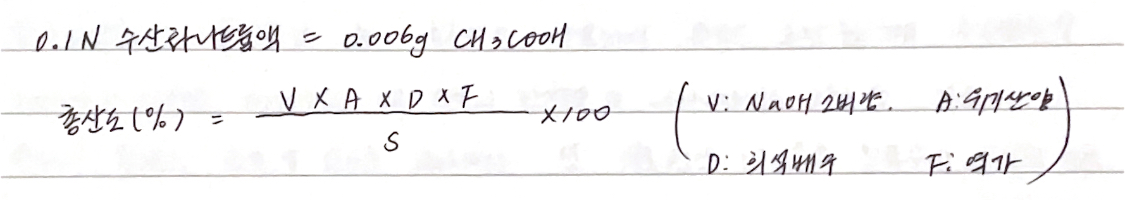 0.1N 수산화나트륨액 = 0.006g CH3COOH
총산도(%) = V X A X D X F / S X100 ( V: NaOH 소비량. A: 유기산양
D: 희석배수 F: 역가 )